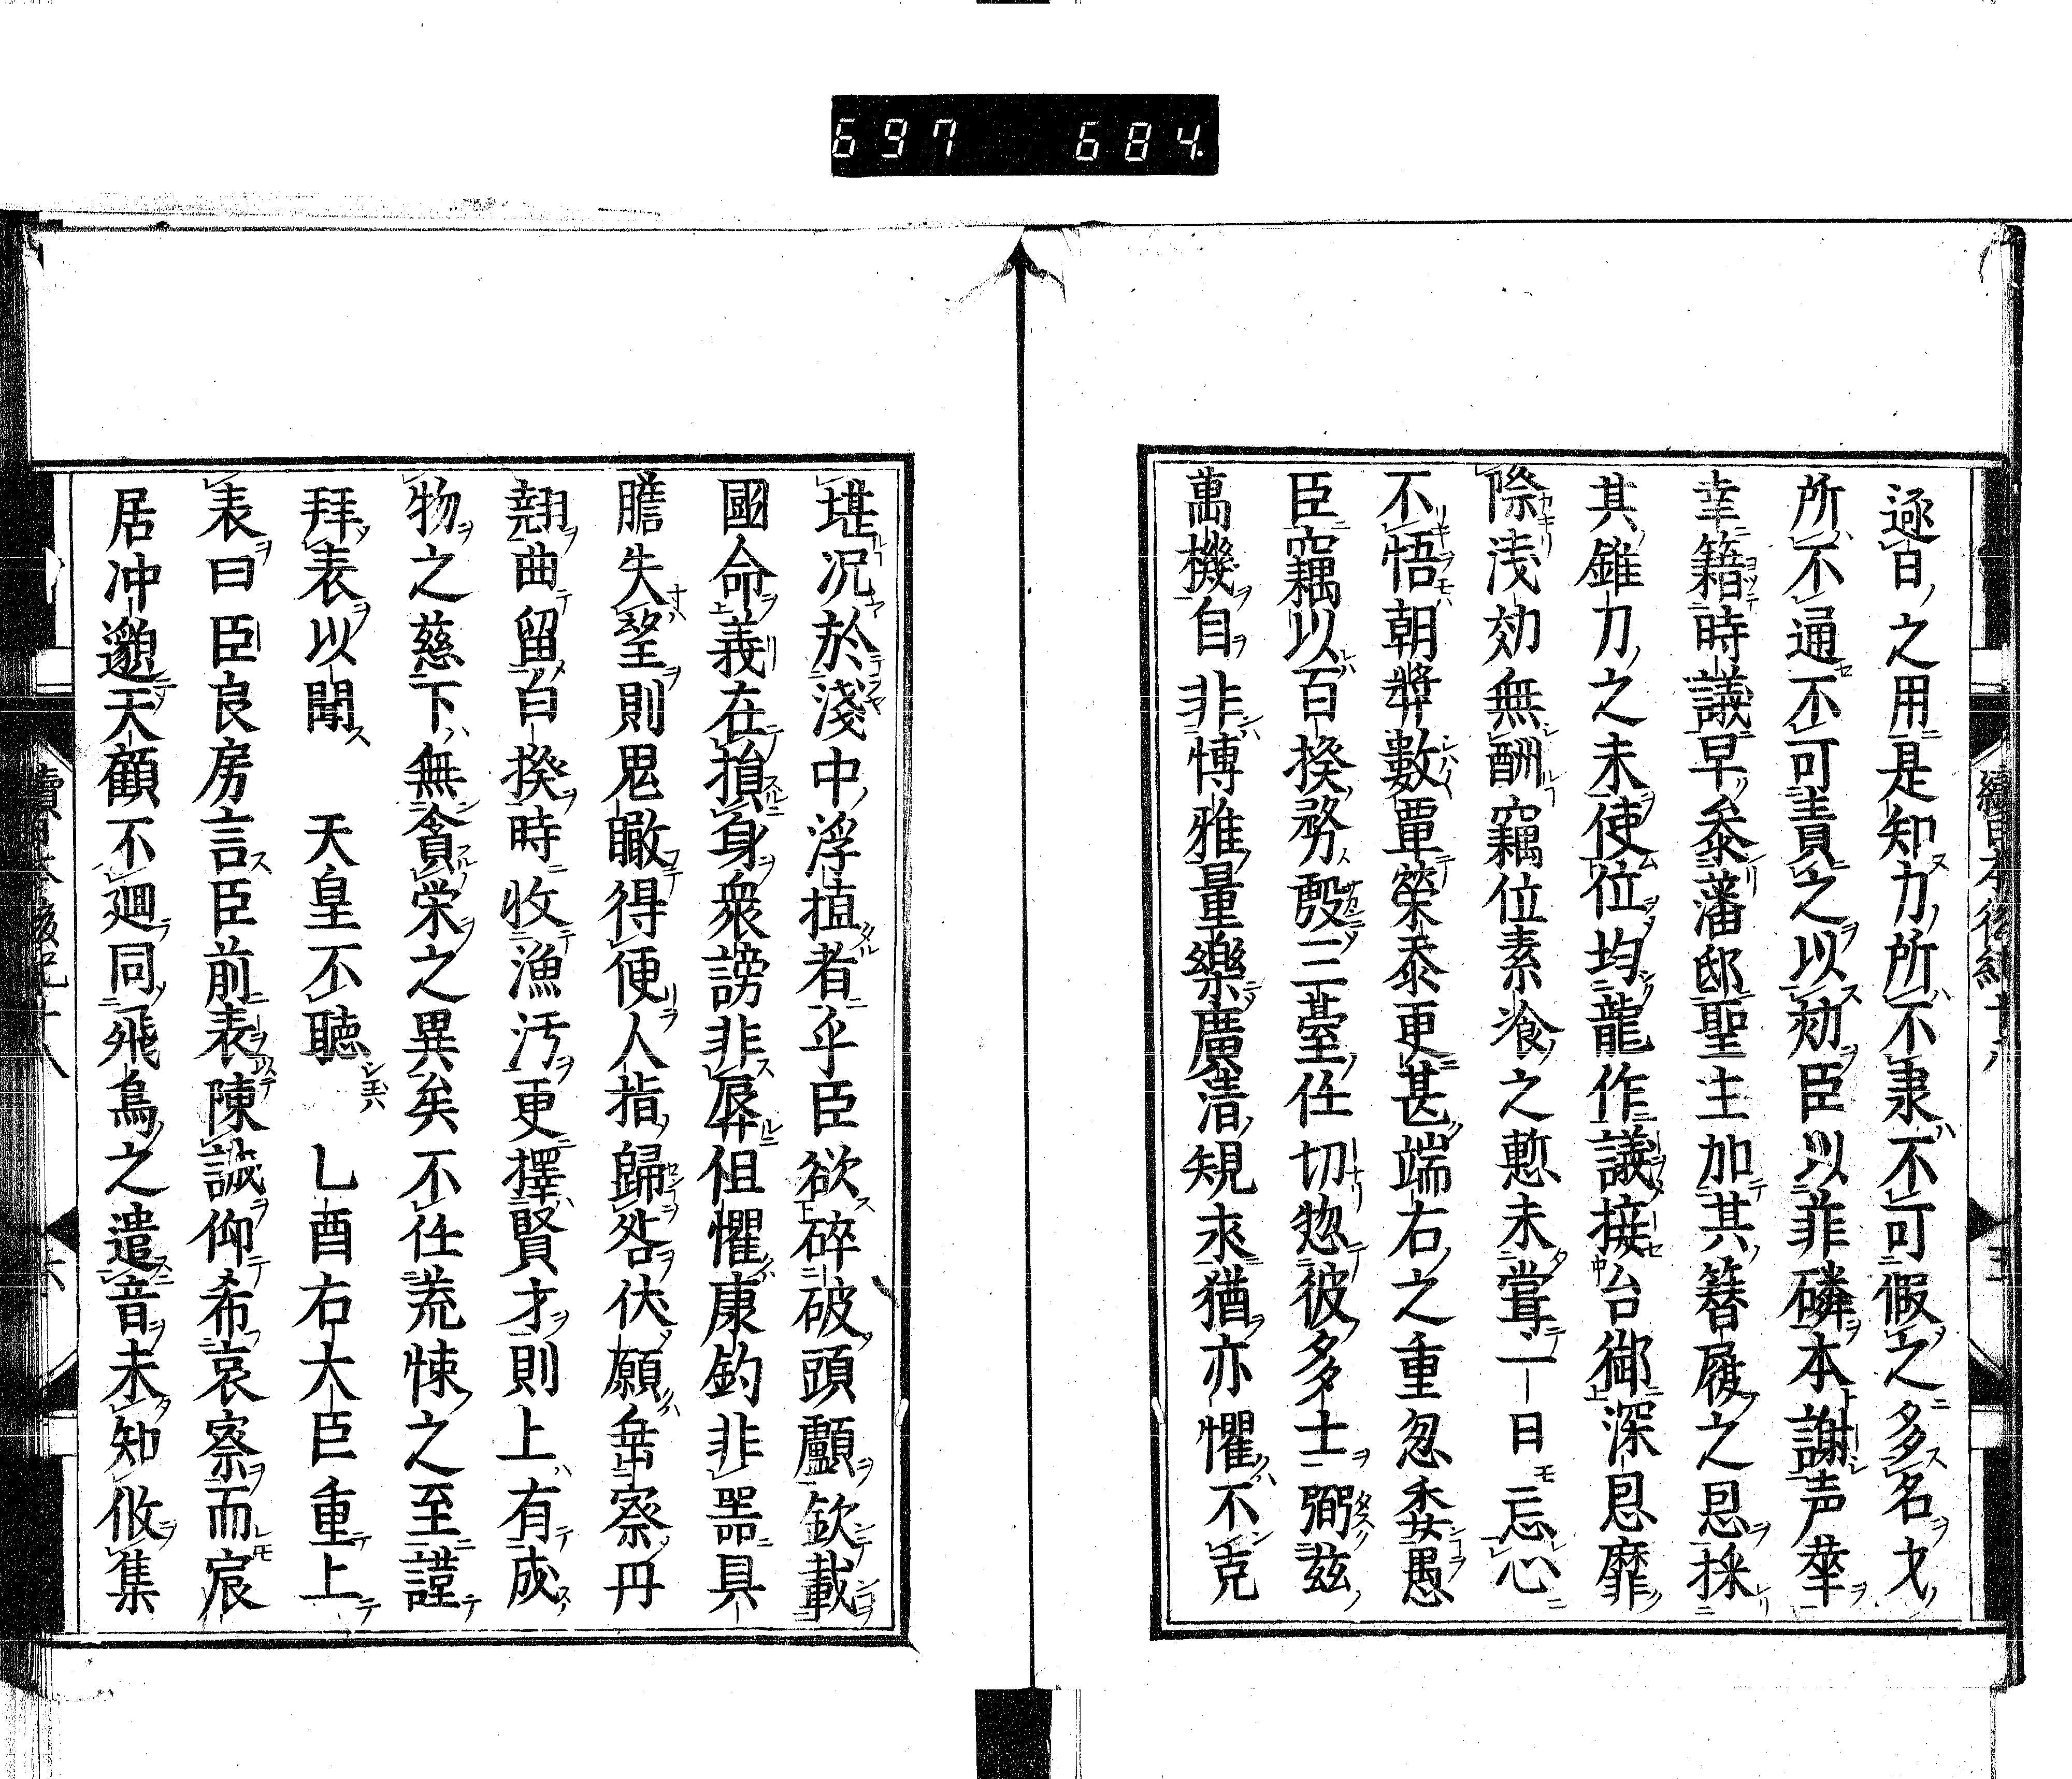 697 684
逾百之用是知力所不隶不可假之多名才
所不通不可責之以効臣以菲磷本謝声華
幸籍時議早忝藩邸聖主加其簪履之恩採
其錐刀之未使位均龍作議擬台衡深恩靡
際浅効無酬竊位素飡之慙未甞一日忘心
不悟朝奬數覃榮忝更甚端右之重忽委愚
臣竊以百揆務殷三臺任切惣彼多士弼茲
萬機自非博雅量樂廣清規求猶亦懼不克
堪况於淺中浮揷者乎臣欲碎破頭顱欽載
國命義在損身衆謗非辱但懼康鈞非噐具
膽失望則鬼瞰得便人指歸咎伏願垂察丹
翹曲留白揆時收渙汚更擇賢才則上有成
物之慈下無貪栄之異矣不任荒悚之至謹
拜表以聞　天皇不聴　乚酉右大臣重上
表曰臣良房言臣前表陳誠仰希哀察而宸
居冲邈天顧不廻同飛鳥之遣音未知攸集